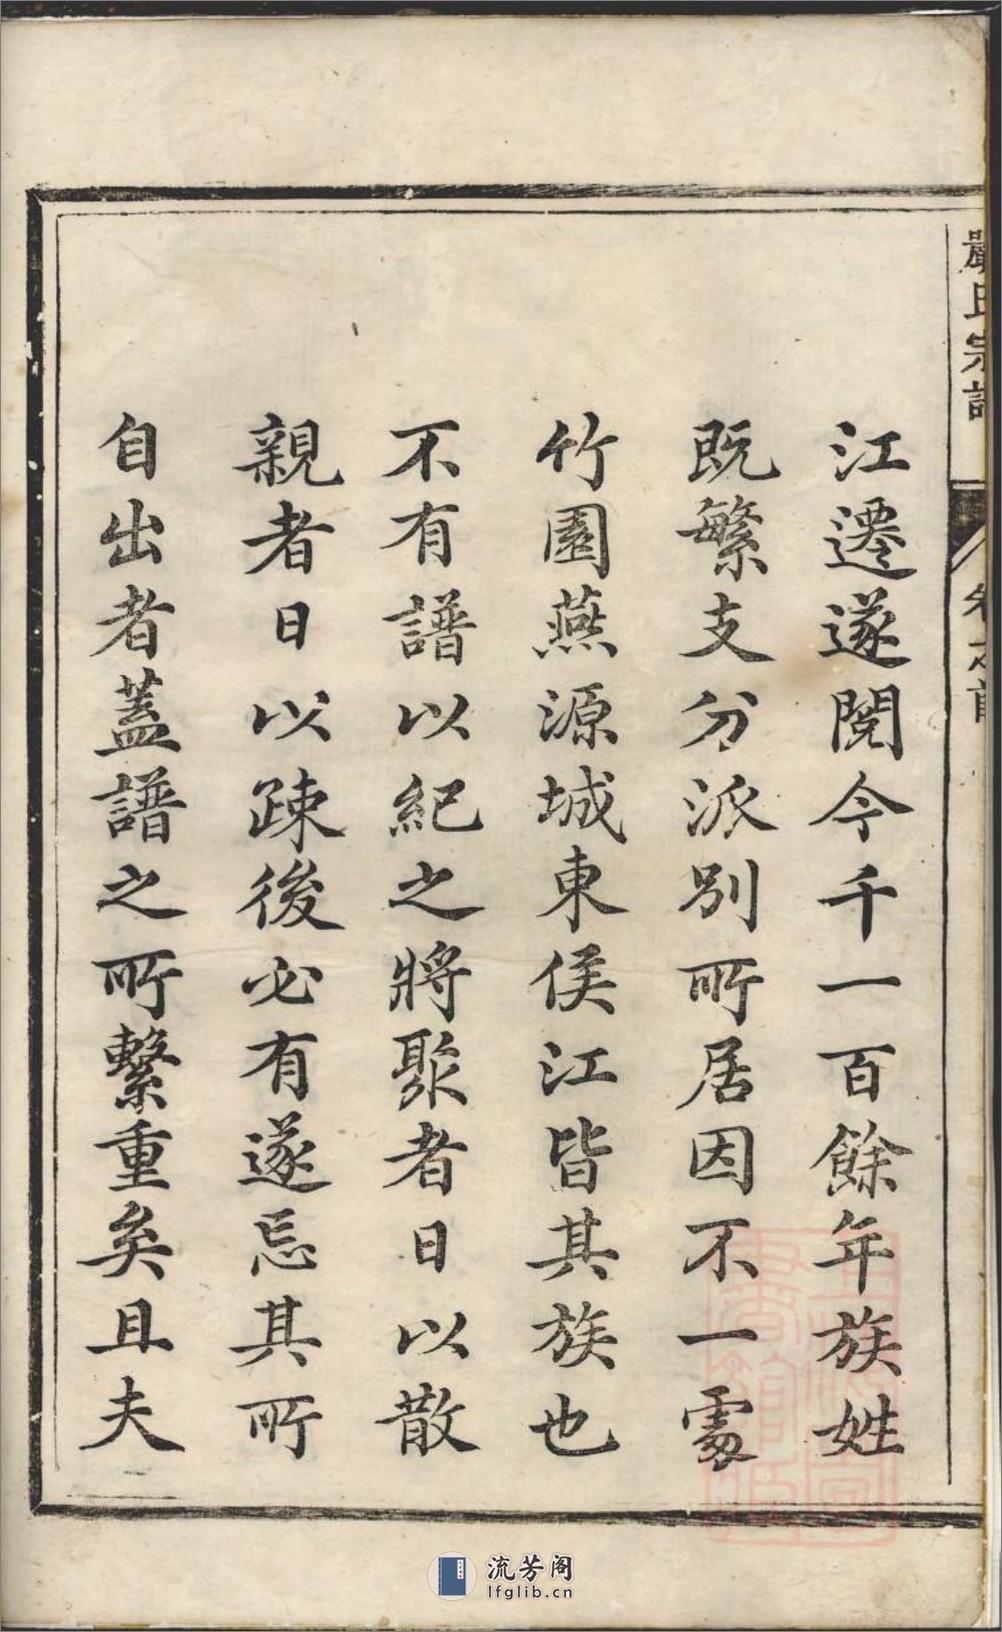 嚴氏宗譜
卷之首
江遷遂閱今千一百餘年族姓
既繁支分派別所居因不一處
竹園燕源城東侯江皆其族也
不有譜以紀之將聚者日以散
親者日以疎後必有遂忘其所
自出者蓋譜之所繫重矣且夫
流芳阁
lfglib.cn